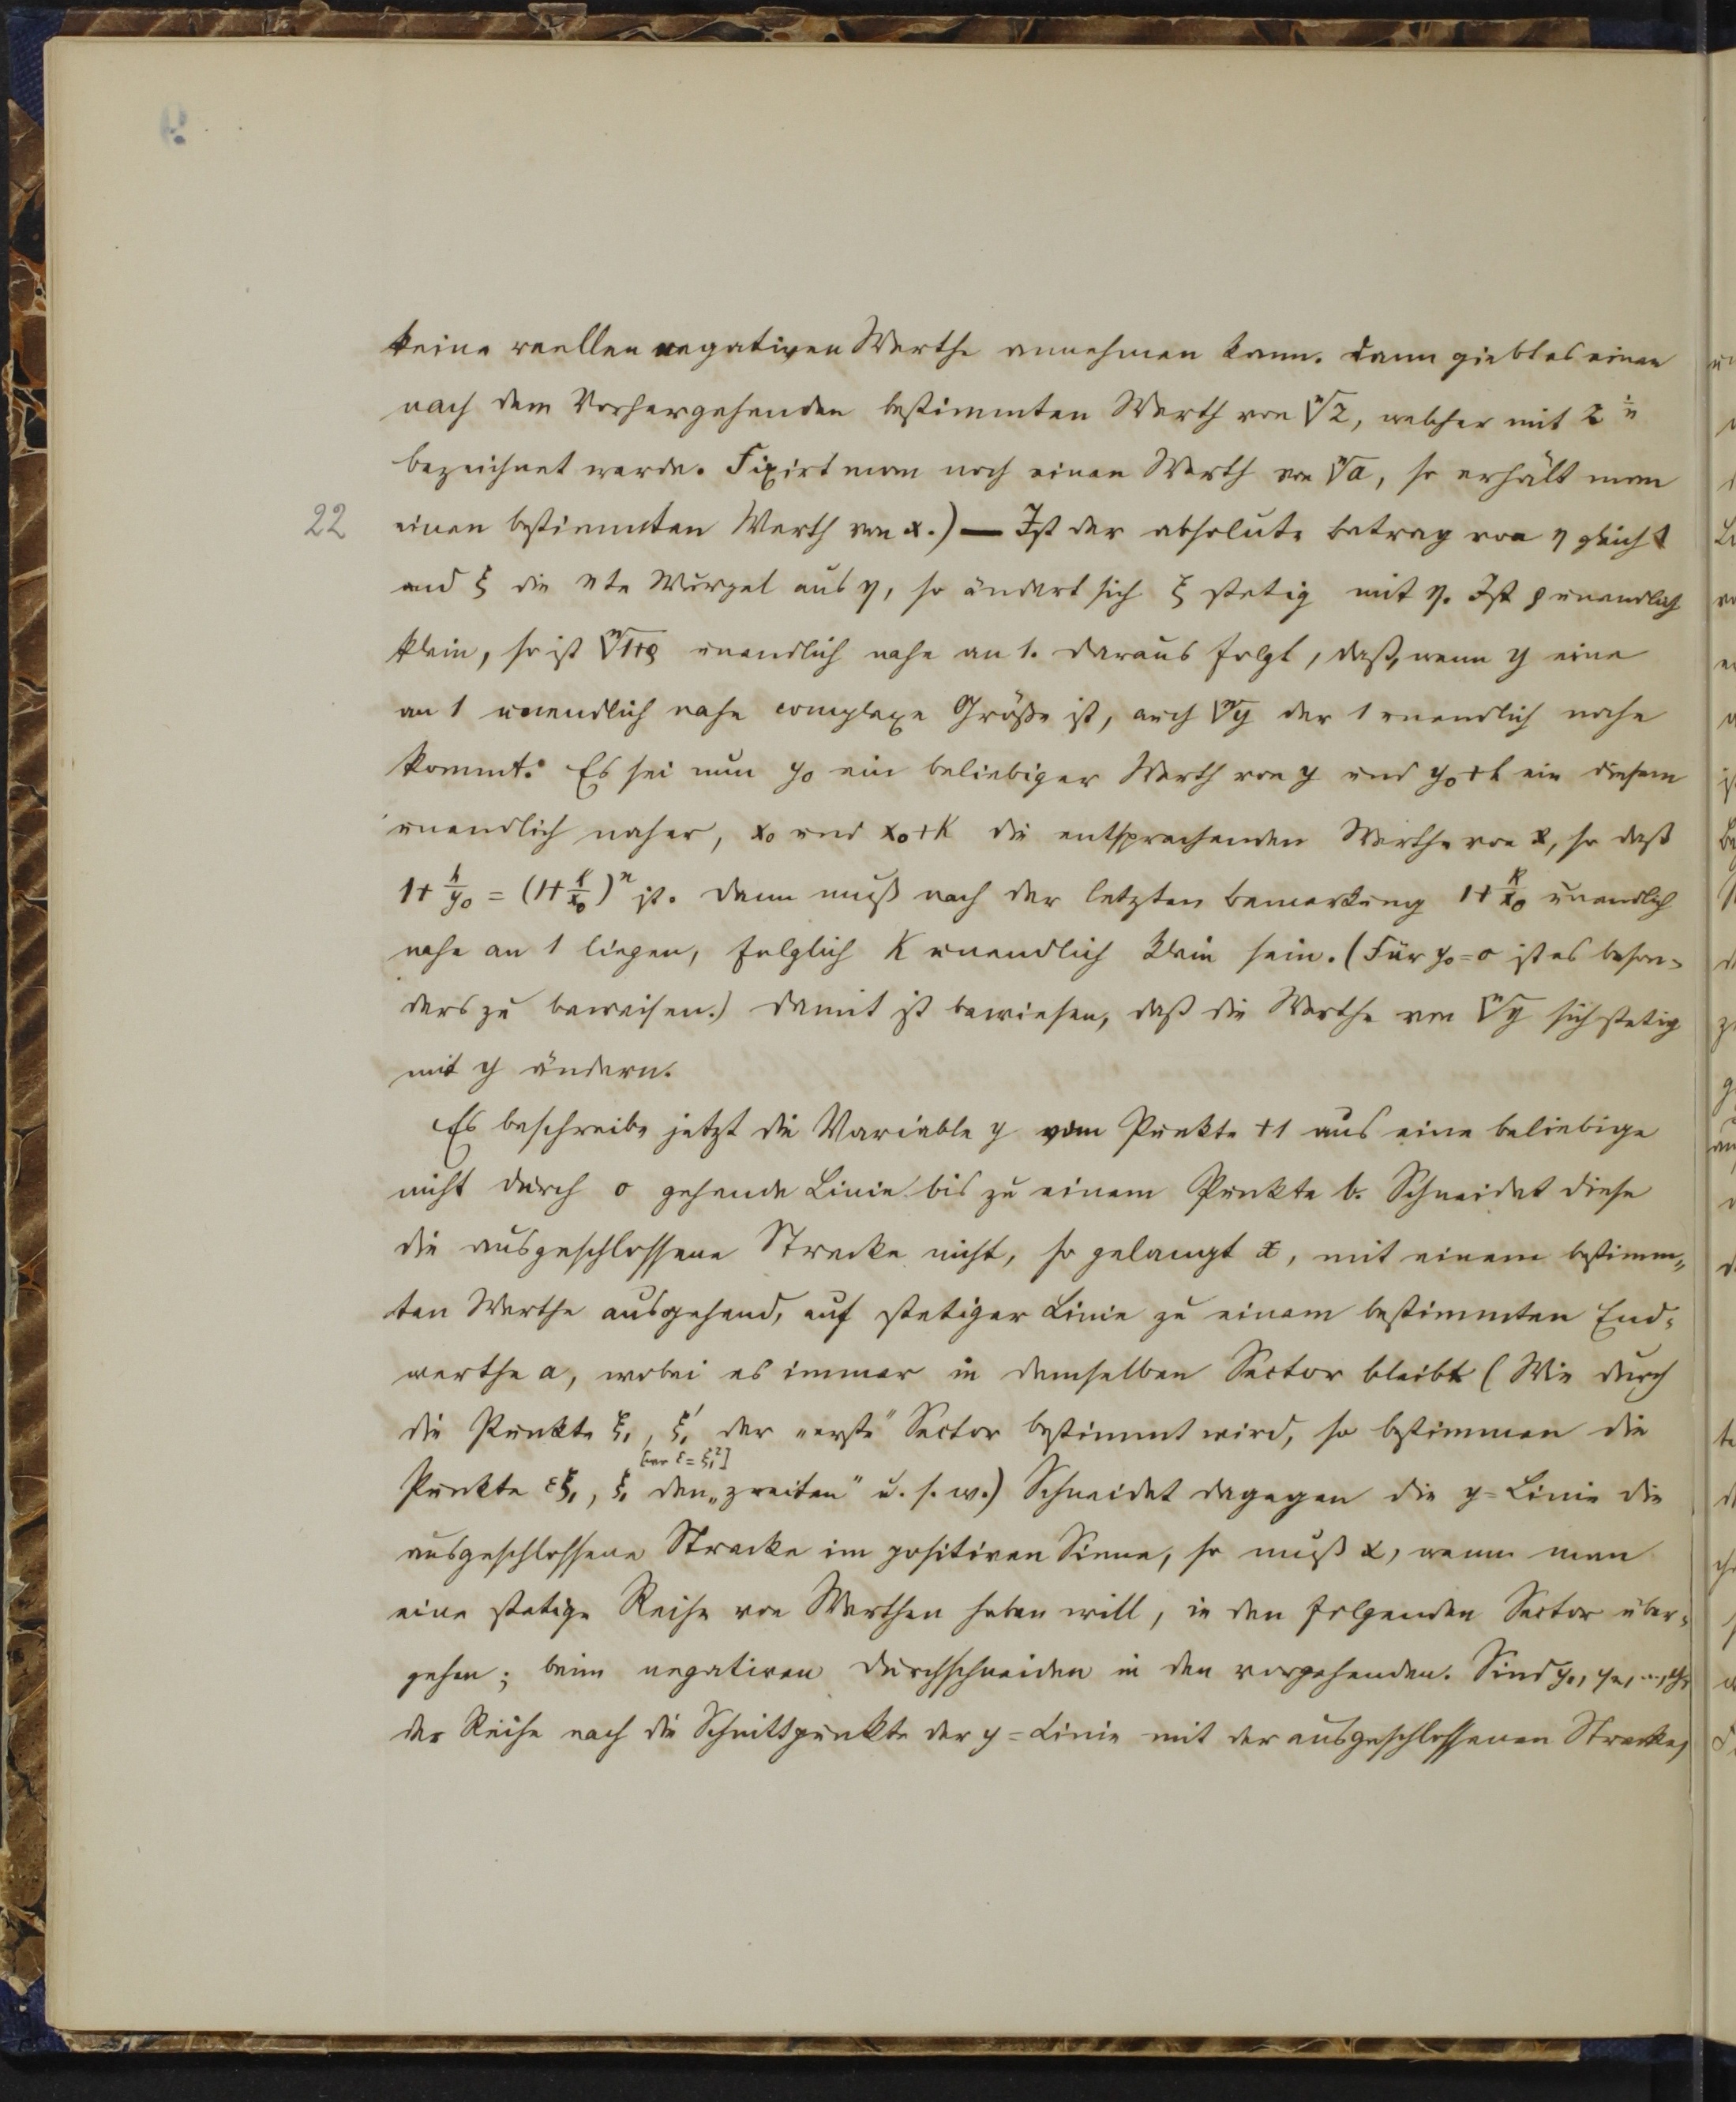 keine reellen negativen Werthe annehmen kann. Dann giebt es einen
nach dem Vorhergehenden bestimmten Werth von ⁿ√z, welcher mit z^(1/n)
bezeichnet werde. Fixirt man noch einen Werth von ⁿ√a, so erhält man
22 einen bestimmten Werth von x.) — Ist der absolute Betrag von η gleich 1
und ξ die nte Wurzel aus η, so ändert sich ξ stetig mit η. Ist ρ unendlich
klein, so ist ⁿ√1+ρ unendlich nahe an 1. Daraus folgt, daß, wenn y eine
an 1 unendlich nahe complexe Größe ist, auch ⁿ√y der 1 unendlich nahe
kommt. Es sei nun y₀ ein beliebiger Werth von y und y₀+h ein diesem
unendlich naher, x₀ und x₀+k die entsprechenden Werthe von x, so daß
1+h/y₀ = (1+k/x₀)ⁿ ist. Dann muß nach der letzten Bemerkung 1+k/x₀ unendlich
nahe an 1 liegen, folglich k unendlich klein sein. (Für y₀=0 ist es beson-
ders zu beweisen.) Damit ist bewiesen, daß die Werthe von ⁿ√y sich stetig
mit y ändern.
Es beschreibe jetzt die Variable y vom Punkte +1 aus eine beliebige
nicht durch 0 gehende Linie bis zu einem Punkte b. Schneidet diese
die ausgeschlossene Strecke nicht, so gelangt x, mit einem bestimm-
ten Werthe ausgehend, auf stetiger Linie zu einem bestimmten End-
werthe a, wobei es immer in demselben Sector bleibt (Wie durch
die Punkte ξ₁, ξ₁' der „erste" Sector bestimmt wird, so bestimmen die
[wo ε=ξ₁²]
Punkte εξ₁, ξ₁ den „zweiten" u. s. w.) Schneidet dagegen die y-Linie die
ausgeschlossene Strecke im positiven Sinne, so muß x, wenn man
eine stetige Reihe von Werthen haben will, in den folgenden Sector über-
gehen; beim negativen Durchschneiden in den vorgehenden. Sind y₁, y₂, ..., yᵣ
der Reihe nach die Schnittpunkte der y-Linie mit der ausgeschlossenen Strecke,